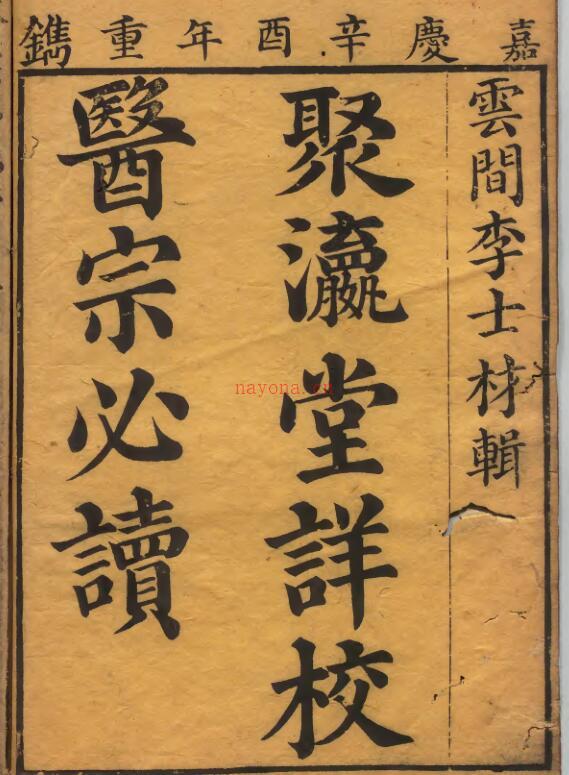 嘉慶辛酉年重鐫
雲間李士材輯
聚瀛堂詳校
醫宗必讀
nayona.cn